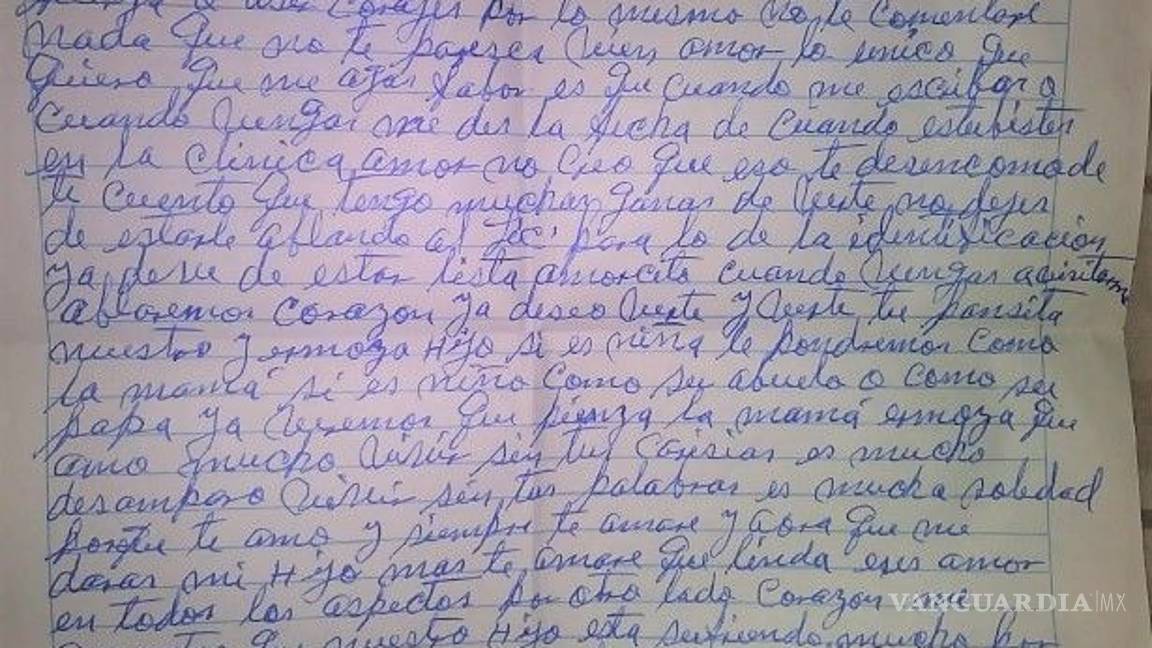 por lo mismo no te comentare
nada que no te parezca bien amor lo unico que
quiero que me agas fabor es que cuando me escribas o
cuando vengas me des la fecha de cuando estubistes
en la clinica amor no creo que eso te desencomode
te cuento que tengo muchas ganas de verte no dejes
de estarle ablando al Lec. para lo de la identificacion
ya debe de estar lista amorcito cuando vengas
ablaremos corazon ya deseo verte y verte tu pansita
nuestro y ermoza Hijo si es niña le pondremos como
la mamá si es niño como su abuelo o como su
papa ya veremos que pienza la mamá ermoza que
amo mucho vivir sin tus carisias es mucho
desamparo vivir sin tus palabras es mucha soledad
porque te amo y siempre te amare y aora que me
daras mi Hijo mas te amare que linda eres amor
en todos los aspectos por otro lado corazon me
que nuestro Hijo esta sufriendo mucho por
VANGUARDIA|MX